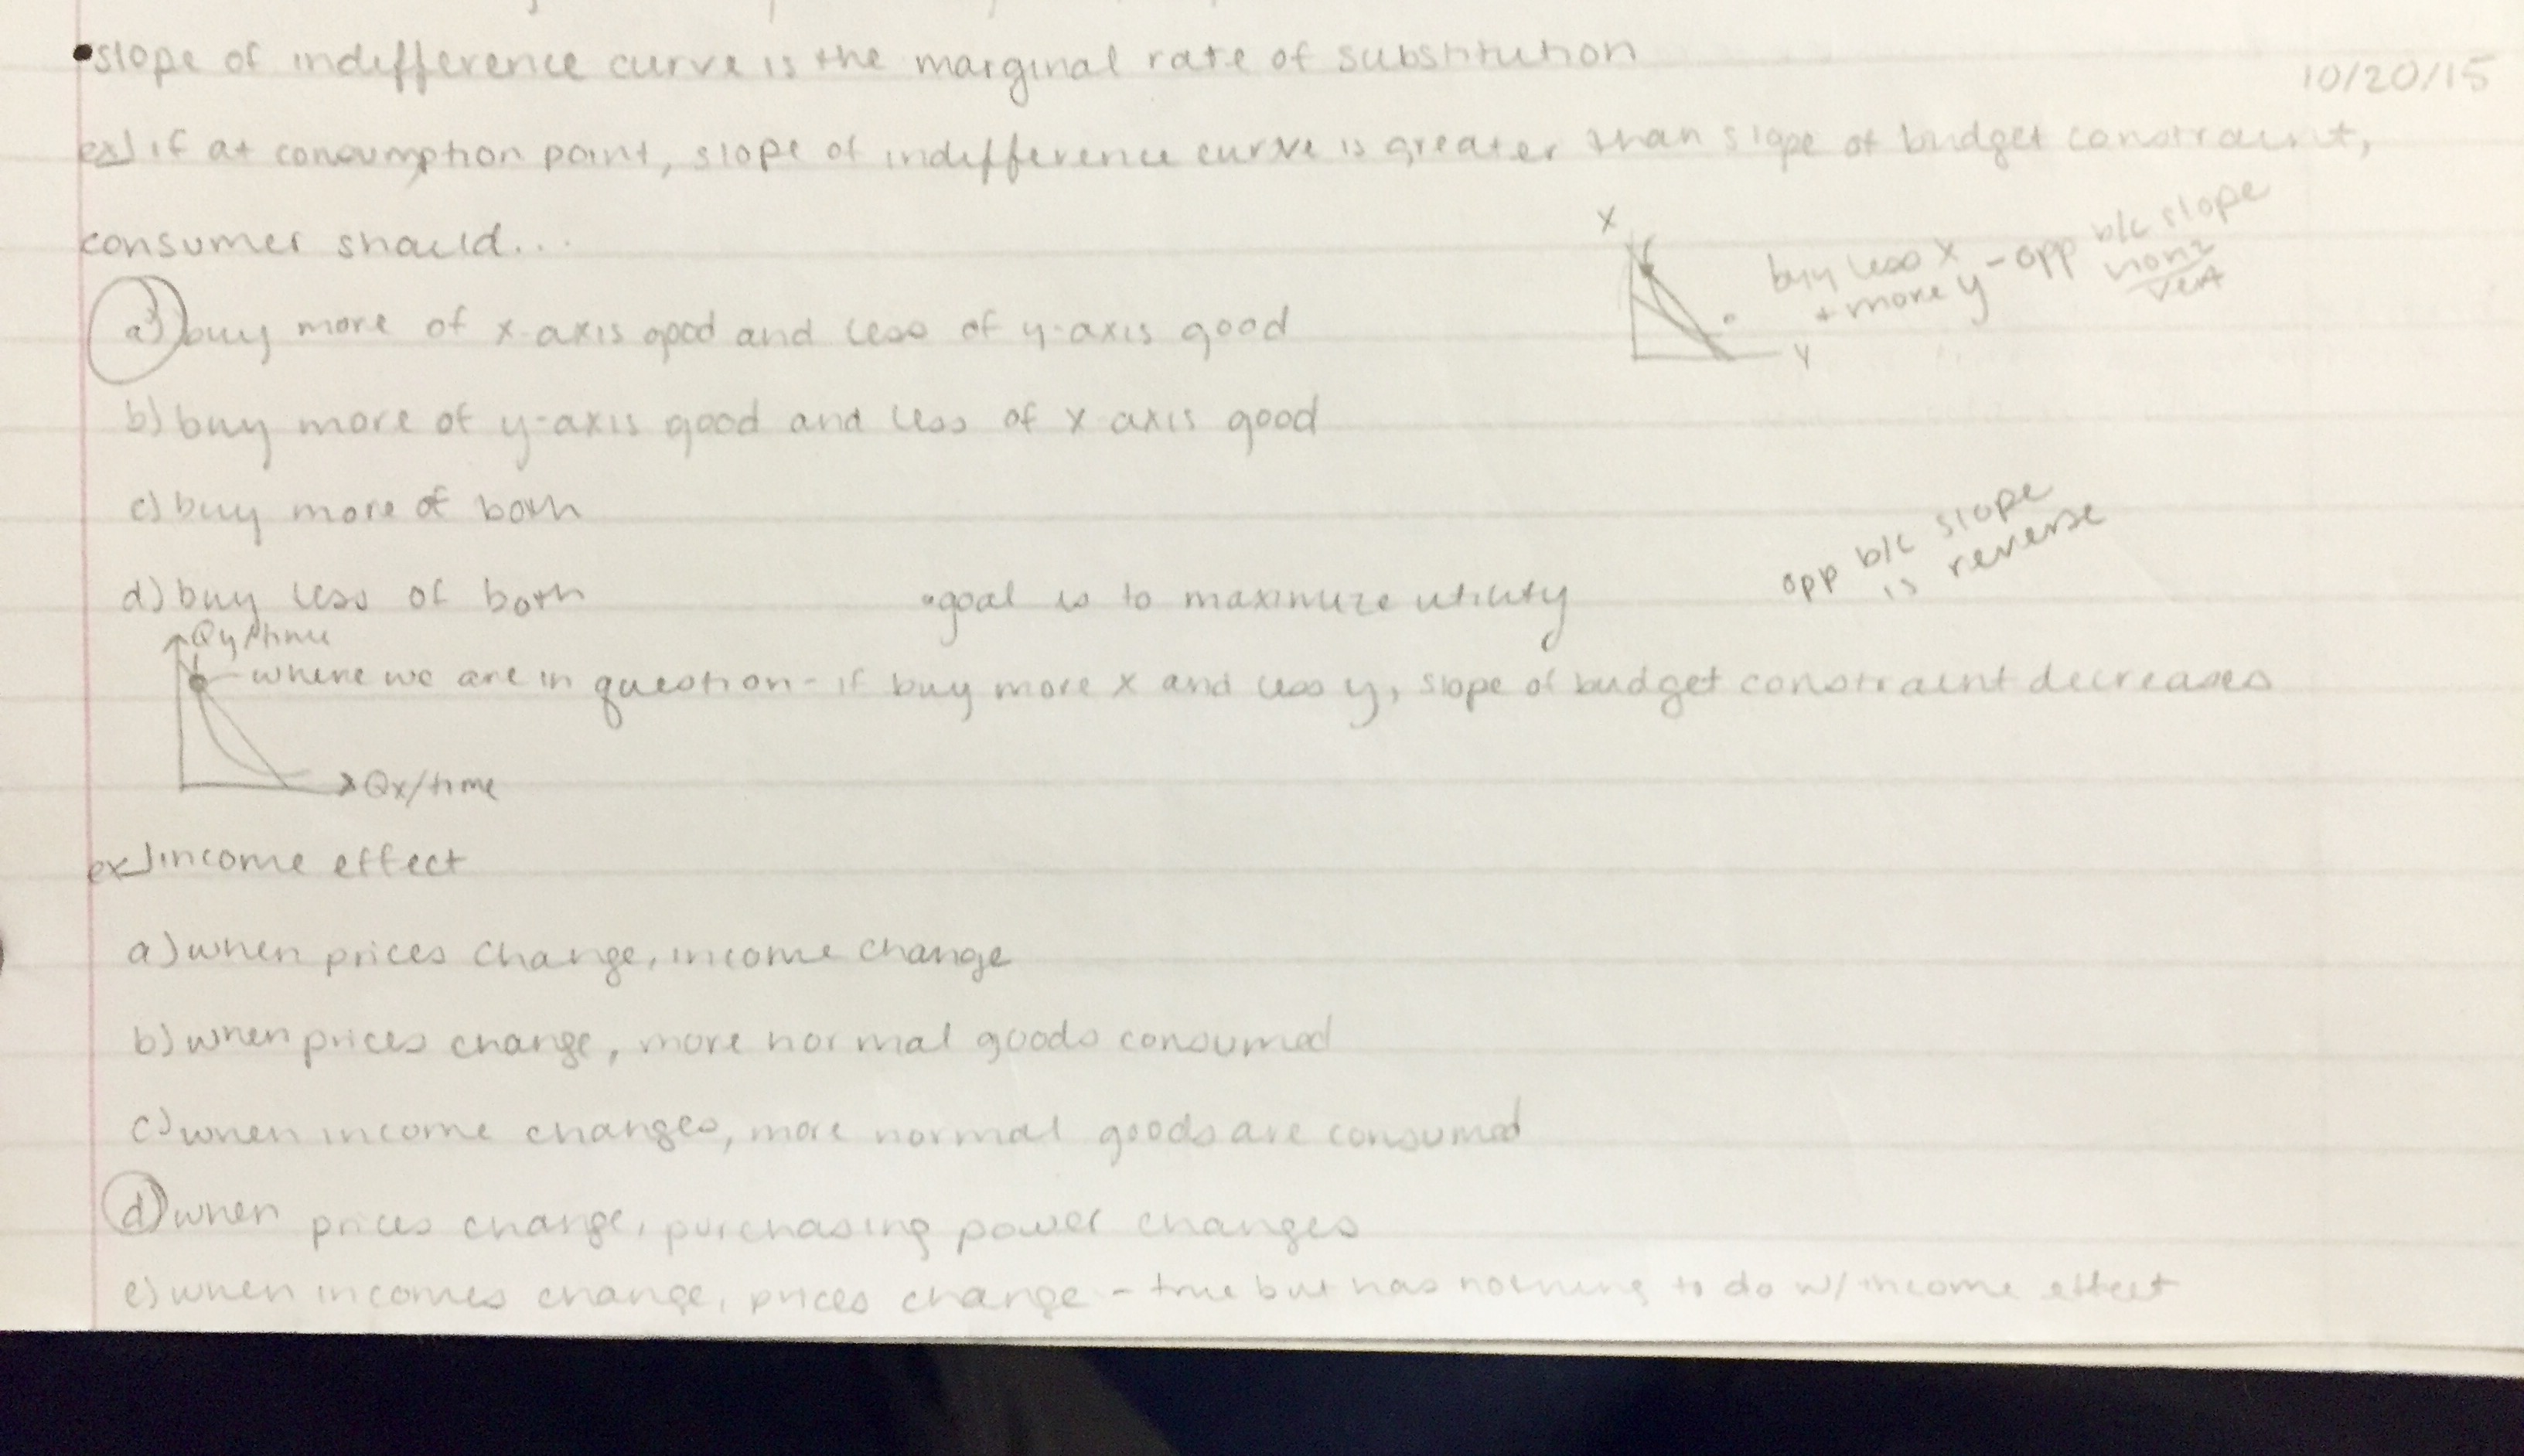 •slope of indifference curve is the marginal rate of substitution
10/20/15
ex) if at consumption point, slope of indifference curve is greater than slope of budget constraint,
consumer should...
a) buy more of x-axis good and less of y-axis good
b) buy more of y-axis good and less of x axis good
c) buy more of both
d) buy less of both
X
Y
buy less X
+ more y - opp b/c slope
horiz
vert
•goal is to maximize utility
opp b/c slope
is reverse
Qy/time
where we are in question - if buy more x and less y, slope of budget constraint decreases
Qx/time
ex) income effect
a) when prices change, income change
b) when prices change, more normal goods consumed
c) when income changes, more normal goods are consumed
d) when prices change, purchasing power changes
e) when incomes change, prices change - true but has nothing to do w/ income effect